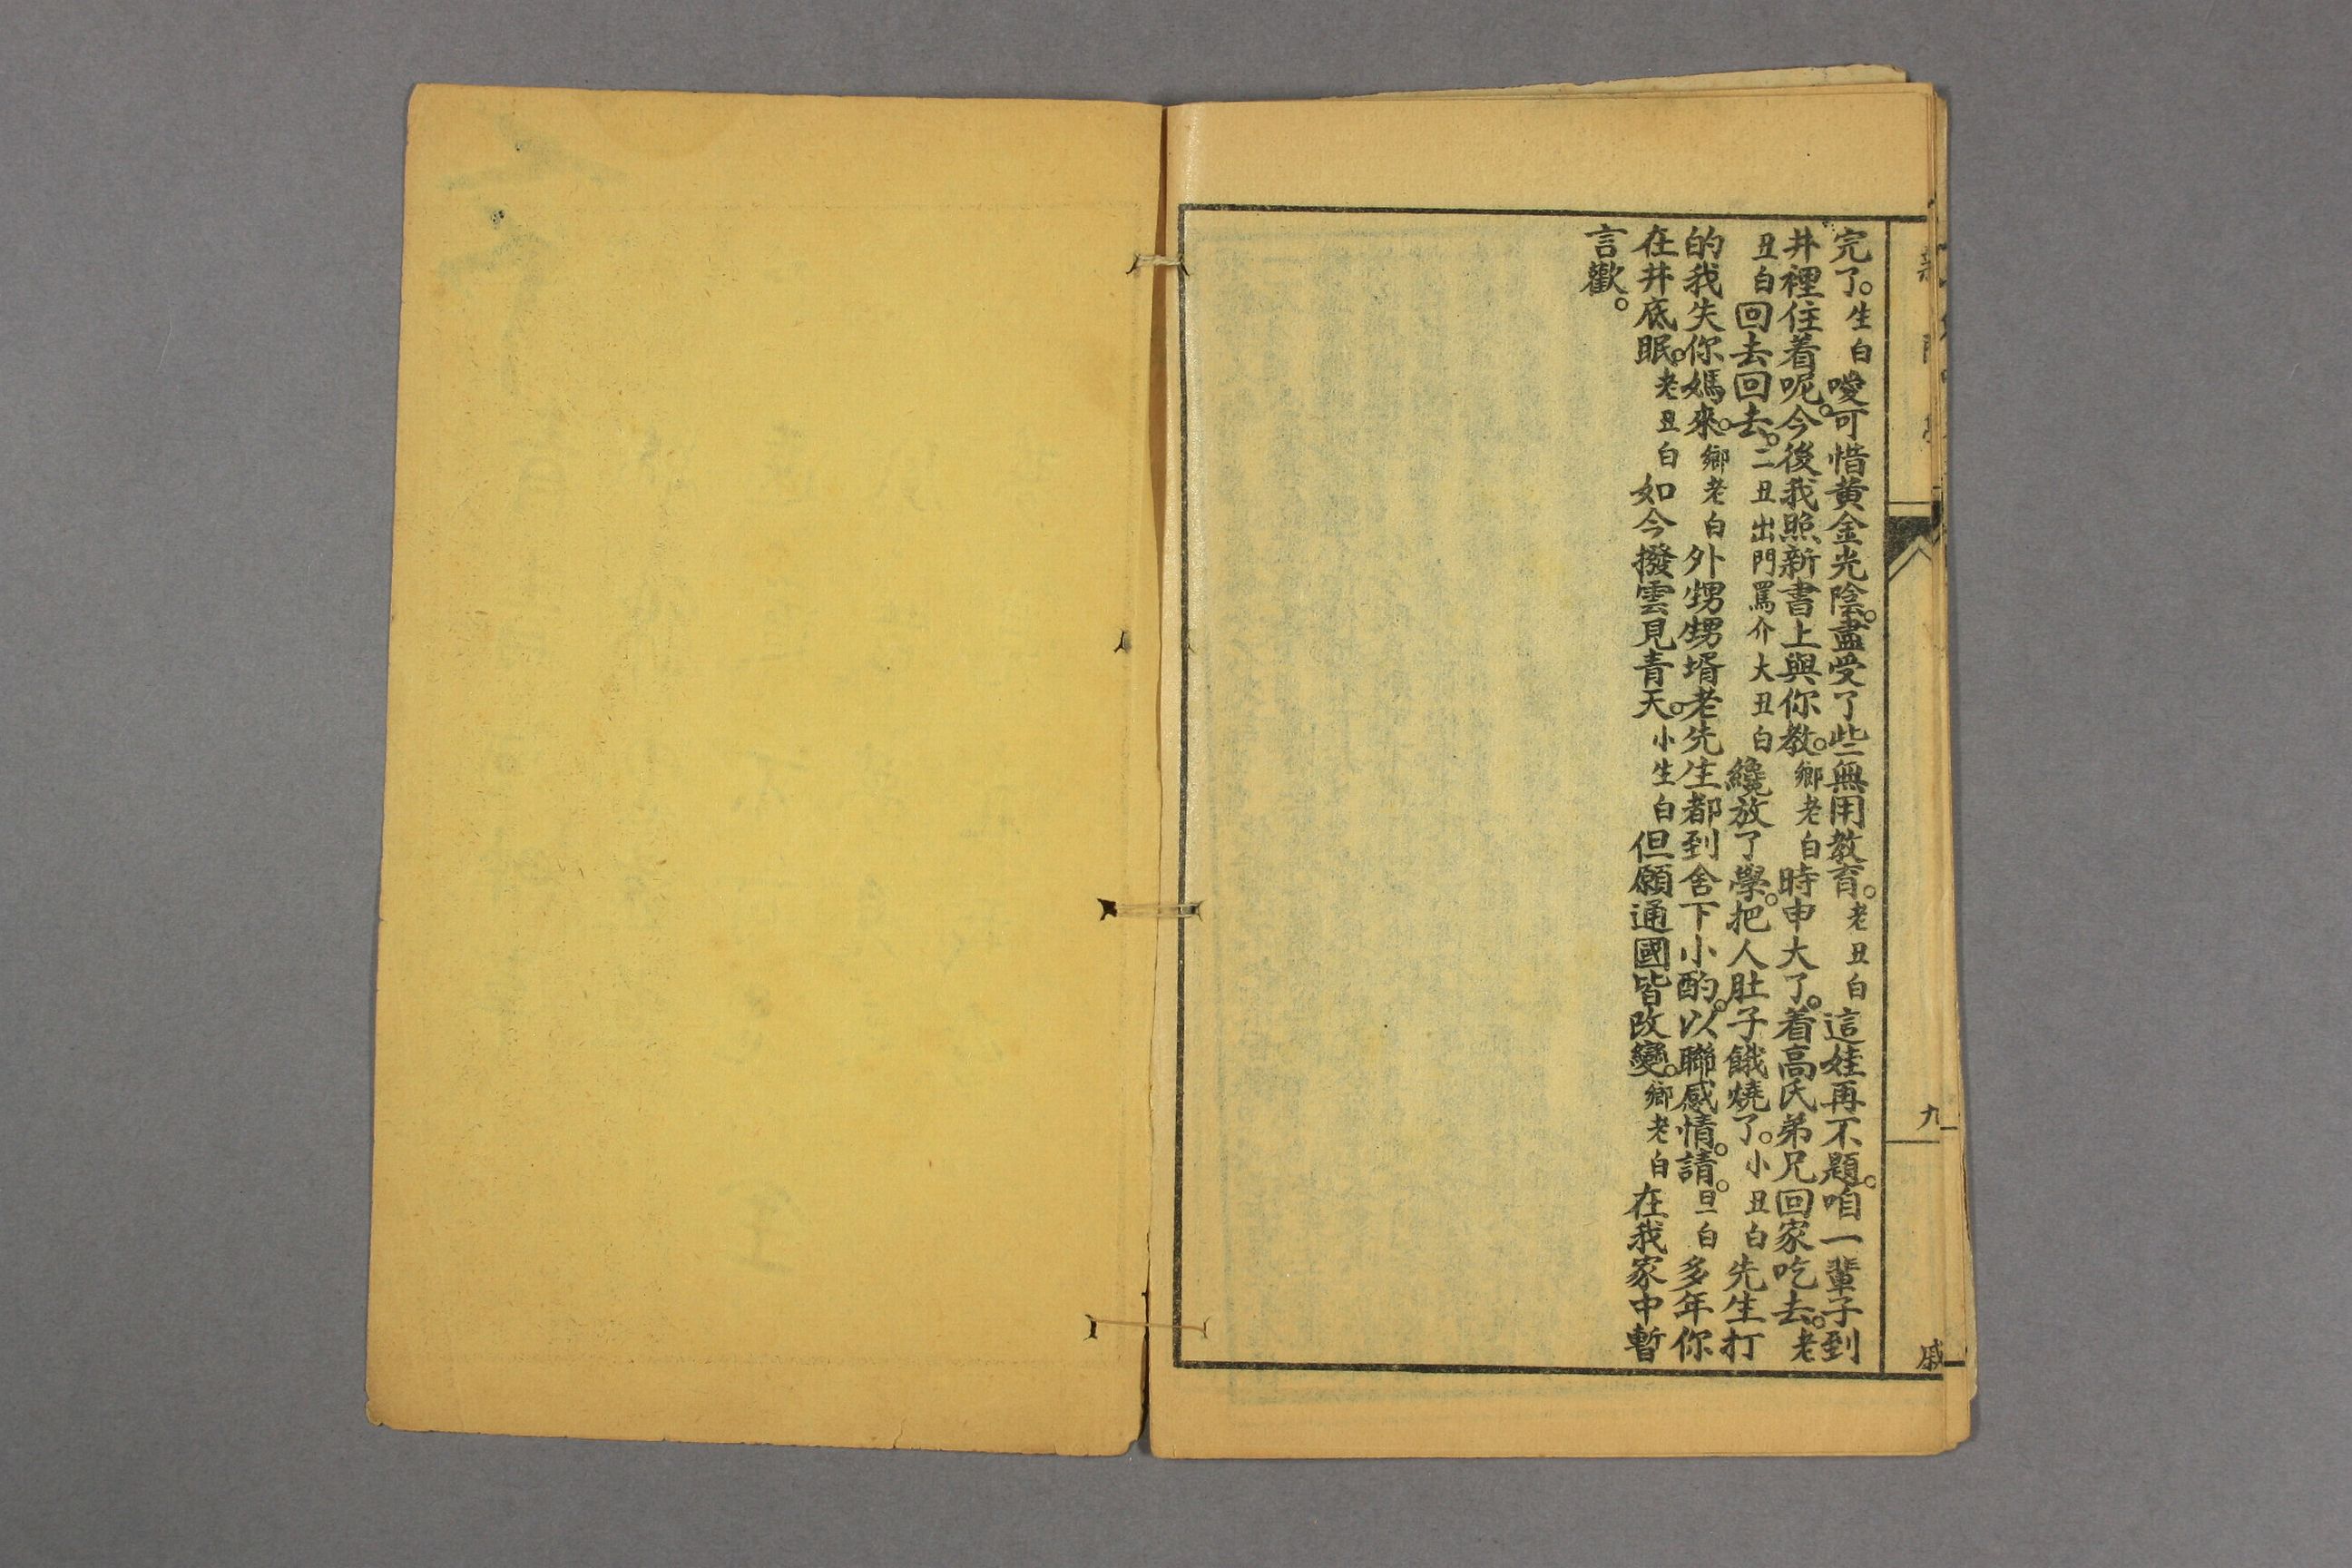 完了。生白噯可惜黄金光陰。盡受了些無用教育。老丑白這娃再不題。咱一輩子到
井裡住着呢。今後我照新書上與你教。鄉老白時申大了。着高氏弟兄回家吃去。老
丑白回去回去。二丑出門罵介大丑白纔放了學。把人肚子餓燒了。小丑白先生打
的我失你媽來。鄉老白外甥甥壻老先生都到舍下小酌。以聯感情。請。旦白多年你
在井底眠。老丑白如今撥雲見青天。小生白但願通國皆改變。鄉老白在我家中暫
言歡。
九
戚